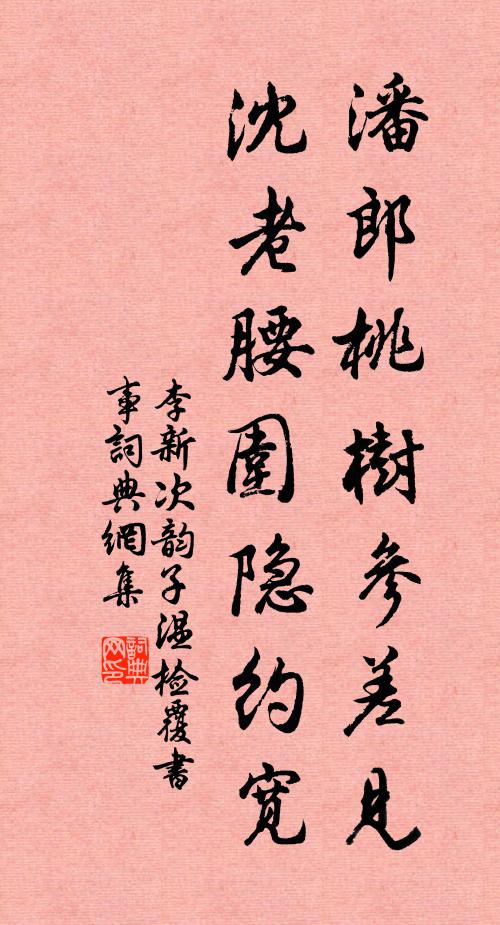 潘郎桃樹參差見
沈老腰圍隐約寬
李新次韵子温检覆書
事詞典網集
詞典网印